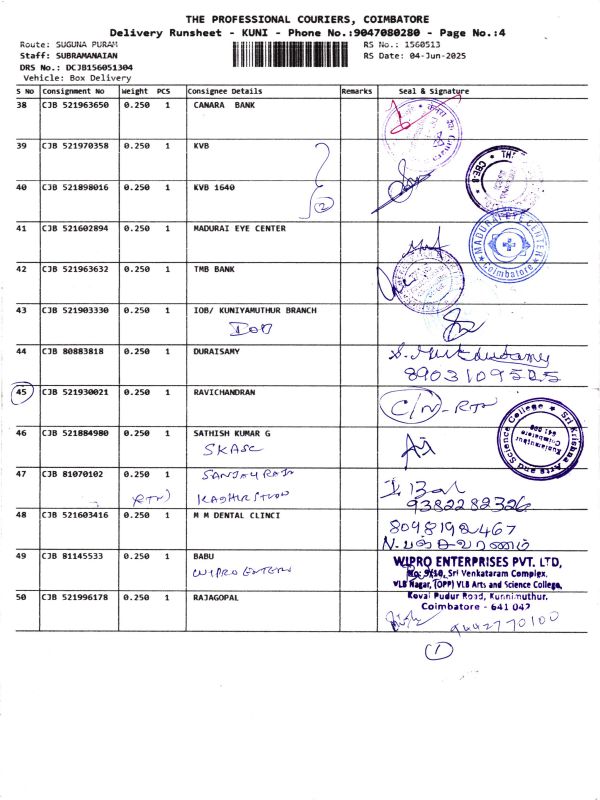 THE PROFESSIONAL COURIERS, COIMBATORE
Delivery Runsheet - KUNI - Phone No.:9047080280 - Page No.:4
Route: SUGUNA PURAM
RS No.: 1560513
Staff: SUBRAMANAIAN
RS Date: 04-Jun-2025
DRS No.: DCJB156051304
Vehicle: Box Delivery
S No Consignment No Weight PCS Consignee Details Remarks Seal & Signature
38 CJB 521963650 0.250 1 CANARA BANK
39 CJB 521970358 0.250 1 KVB
40 CJB 521898016 0.250 1 KVB 1640
2
41 CJB 521602894 0.250 1 MADURAI EYE CENTER
MADURAI EYE CENTER
Coimbatore
42 CJB 521963632 0.250 1 TMB BANK
43 CJB 521903330 0.250 1 IOB/ KUNIYAMUTHUR BRANCH
IOB
44 CJB 80883818 0.250 1 DURAISAMY
8903109525
45 CJB 521930021 0.250 1 RAVICHANDRAN
C/N - RTN
46 CJB 521884980 0.250 1 SATHISH KUMAR G
SKASC
Sri Krishna Arts and Science College
Kuniamuthur
Coimbatore
641 008
47 CJB 81070102 0.250 1 SANJAY RAJA
RTN)
9382282326
48 CJB 521603416 0.250 1 M M DENTAL CLINCI
8098192467
49 CJB 81145533 0.250 1 BABU
WIPRO ENTER
WIPRO ENTERPRISES PVT. LTD,
No: 9/10, Sri Venkataram Complex,
VLB Nagar, (OPP) VLB Arts and Science College,
Kovai Pudur Road, Kunnimuthur.
Coimbatore - 641 042
50 CJB 521996178 0.250 1 RAJAGOPAL
9442770100
1